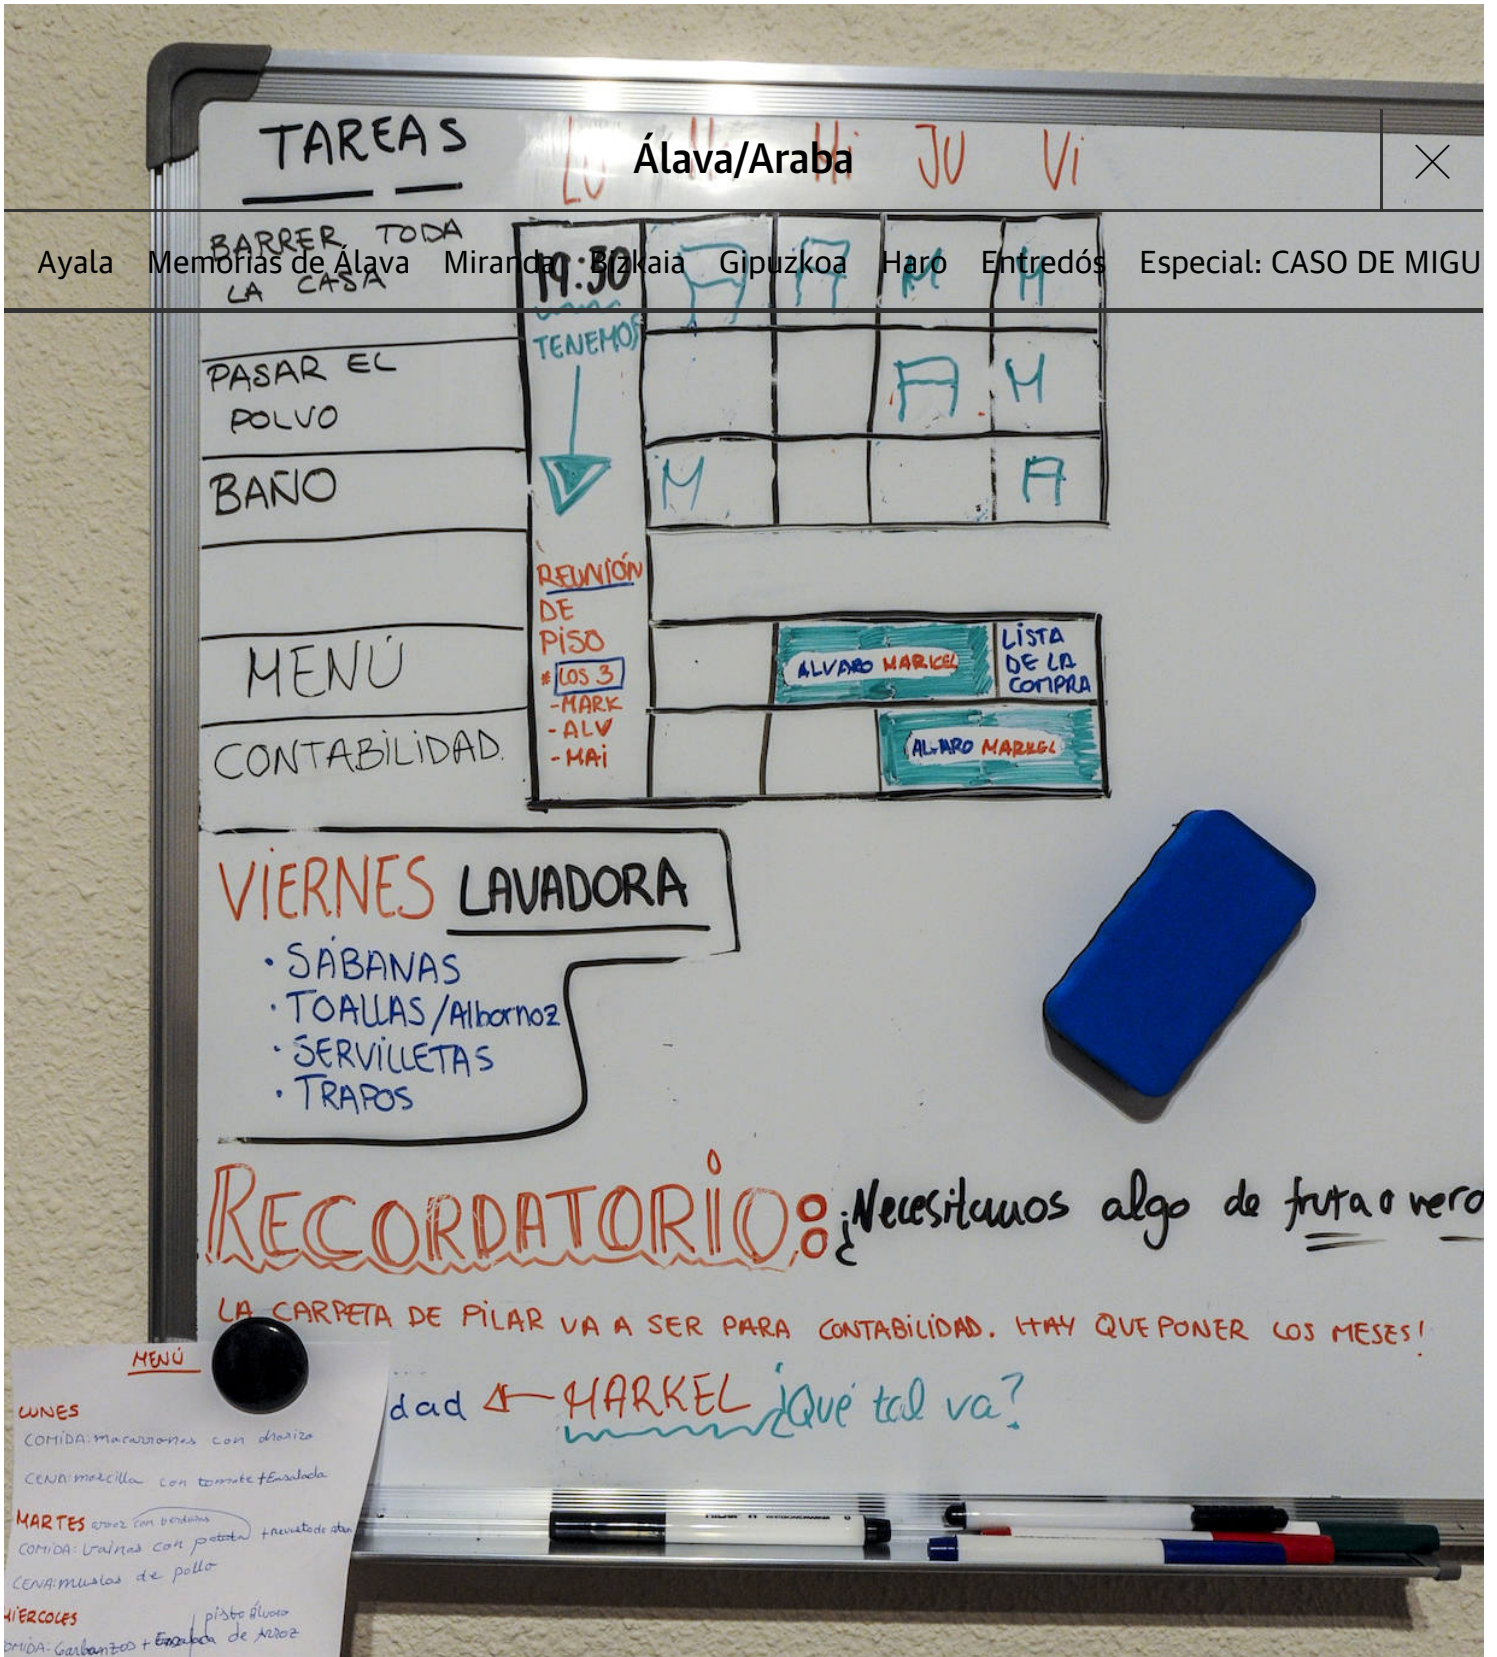 TAREAS
LU Mi JU Vi
Álava/Araba
BARRER TODA
LA CASA
Ayala Memorias de Álava Miranda Bizkaia Gipuzkoa Haro Entredós Especial: CASO DE MIGU
19:30 A A M M
TENEMOS
PASAR EL
POLVO
A M
BAÑO
M A
REUNIÓN
DE
PISO
* LOS 3
-MARK
-ALV
-MAI
MENÚ
ALVARO MARKEL
LISTA
DE LA
COMPRA
CONTABILIDAD
ALVARO MARKEL
VIERNES LAVADORA
· SÁBANAS
· TOALLAS/Albornoz
· SERVILLETAS
· TRAPOS
RECORDATORIO: ¿Necesitamos algo de fruta o verd
LA CARPETA DE PILAR VA A SER PARA CONTABILIDAD. HAY QUE PONER LOS MESES!
dad ← MARKEL ¿Qué tal va?
MENÚ
LUNES
COMIDA: macarrones con chorizo
CENA: morcilla con tomate + Ensalada
MARTES arroz con verduras
COMIDA: Vainas con patata + revuelto de
CENA: muslos de pollo
MIÉRCOLES
pisto Álvaro
OMIDA: Garbanzos + Ensalada de Arroz